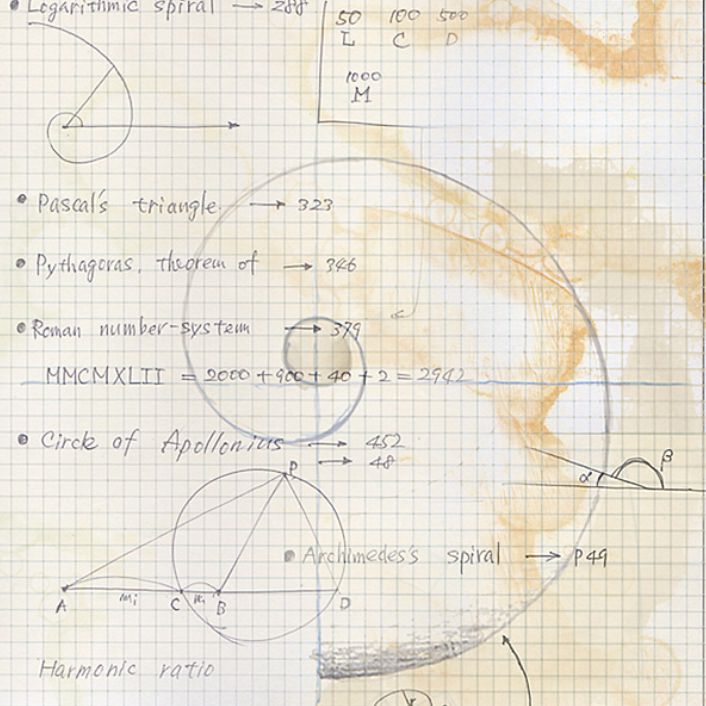 • Logarithmic spiral → 288
50 100 500
L C D
1000
M
• Pascal's triangle → 323
• Pythagoras, theorem of → 346
• Roman number-system → 379
MMCMXLII = 2000 + 900 + 40 + 2 = 2942
• Circle of Apollonius → 452
→ 48
P
α β
• Archimedes's spiral → P49
A C B D
Harmonic ratio